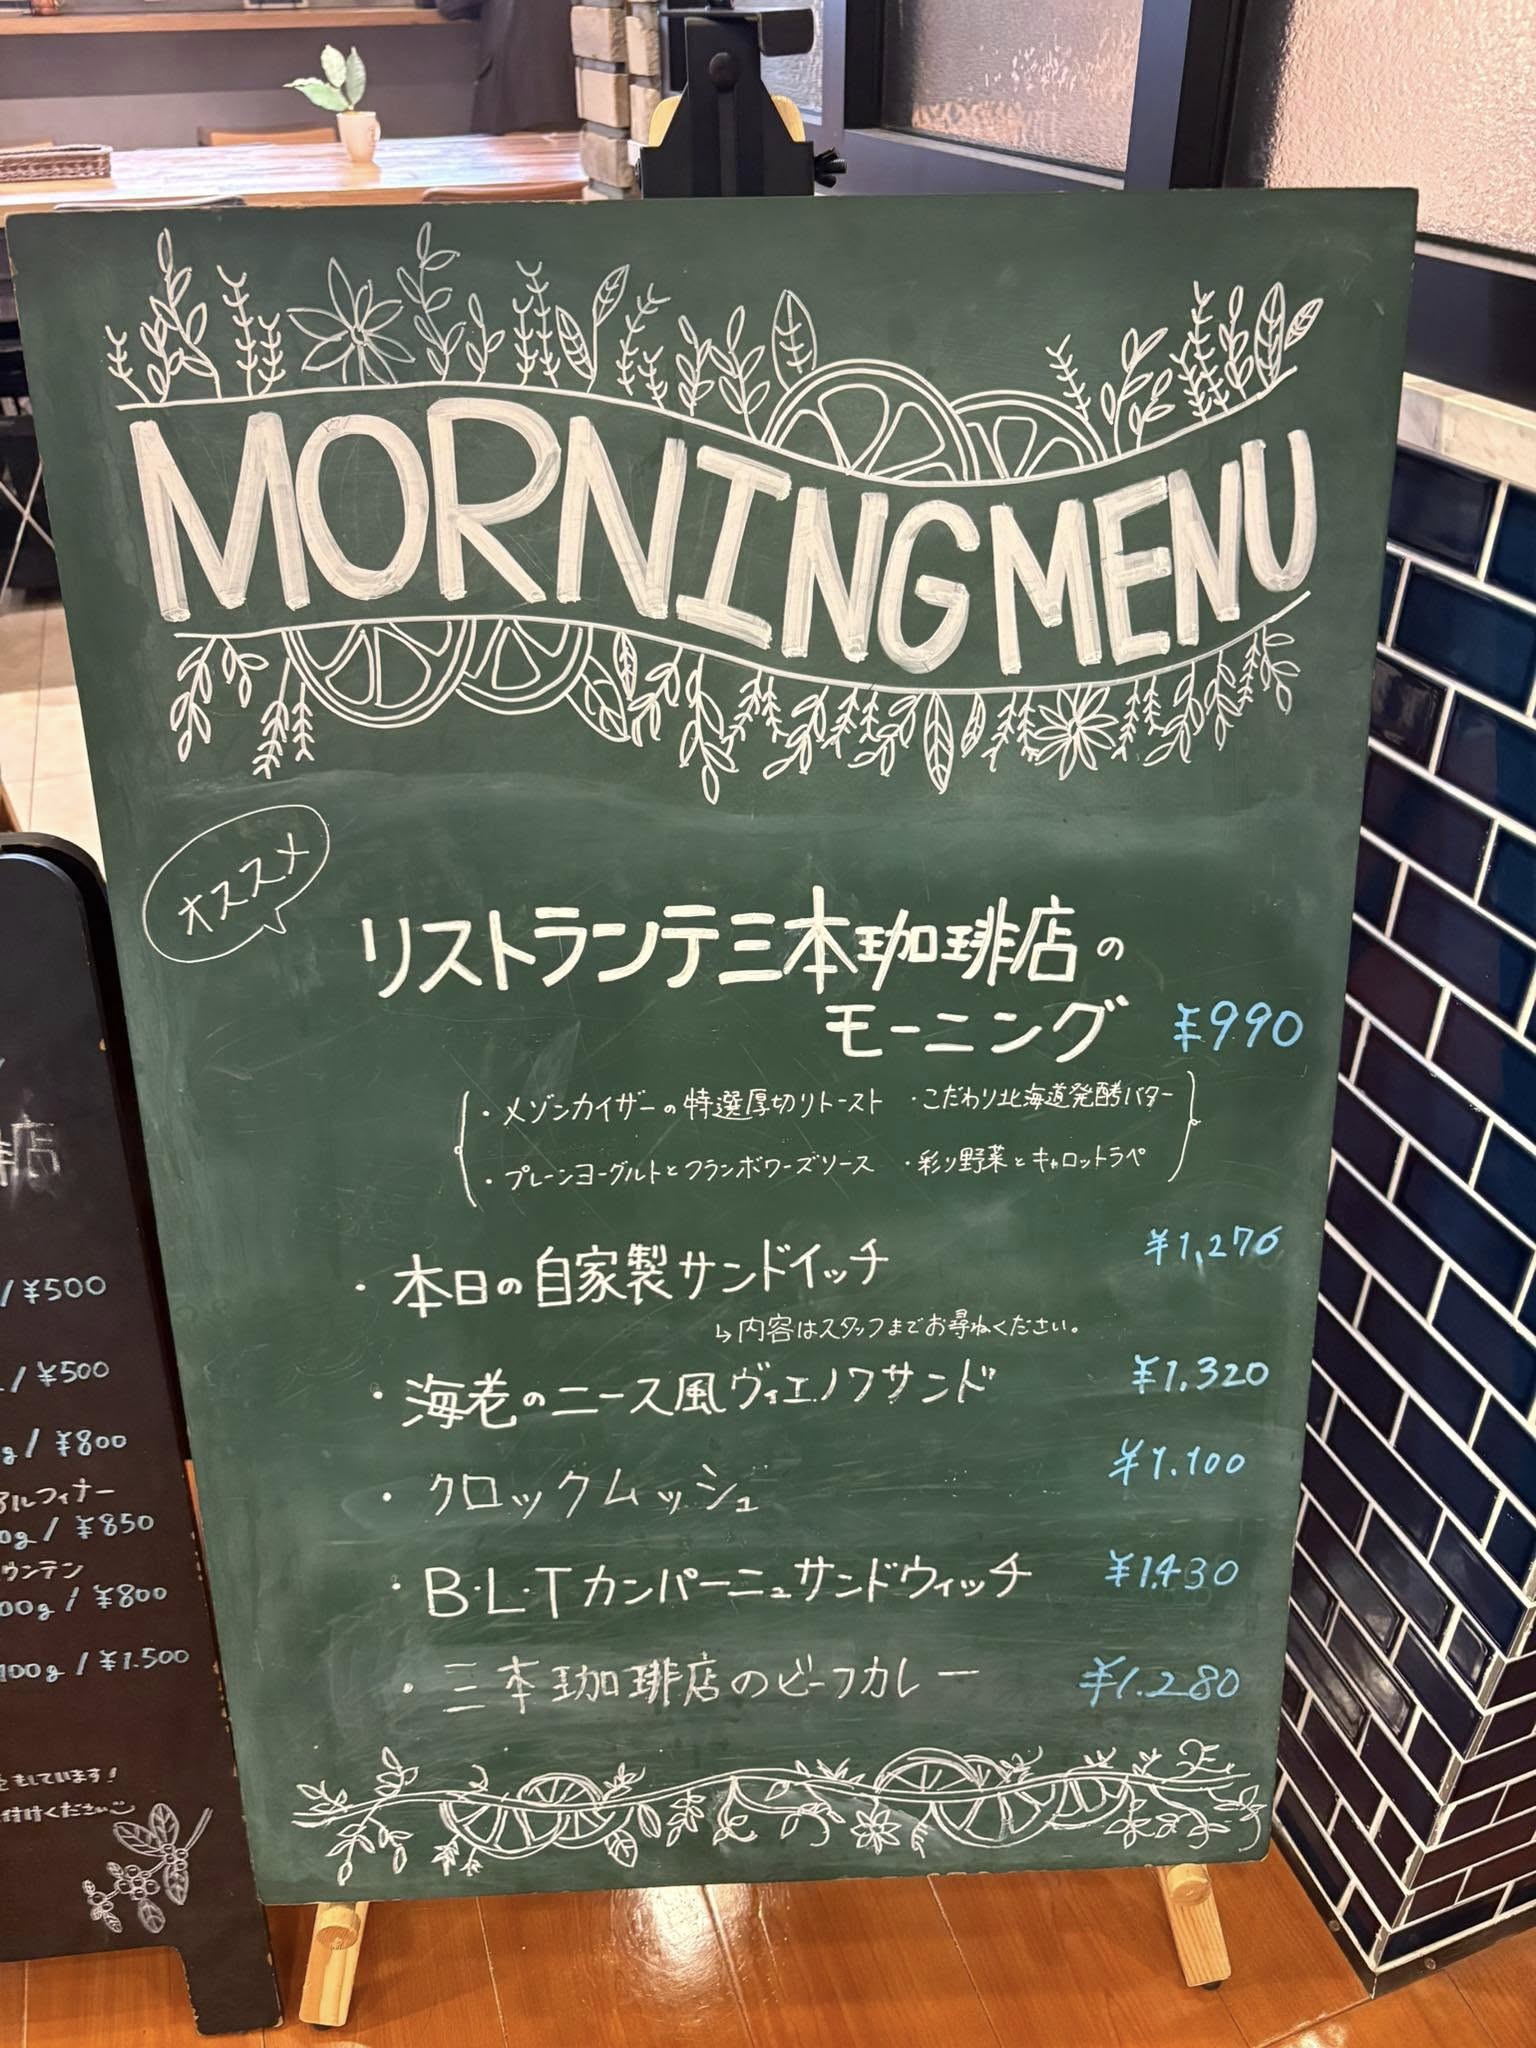 MORNING MENU
オススメ
リストランテ三本珈琲店の
モーニング ¥990
・メゾンカイザーの特選厚切りトースト ・こだわり北海道発酵バター
・プレーンヨーグルトとフランボワーズソース ・彩り野菜とキャロットラペ
・本日の自家製サンドイッチ ¥1,270
↳内容はスタッフまでお尋ねください。
・海老のニース風ヴィエノワサンド ¥1.320
・クロックムッシュ ¥1.100
・B・L・Tカンパーニュサンドウィッチ ¥1.430
・三本珈琲店のビーフカレー ¥1.280
店
/ ¥500
/ ¥500
g / ¥800
ルフィナー
0g / ¥850
ウンテン
00g / ¥800
100g / ¥1.500
しています!
付けください